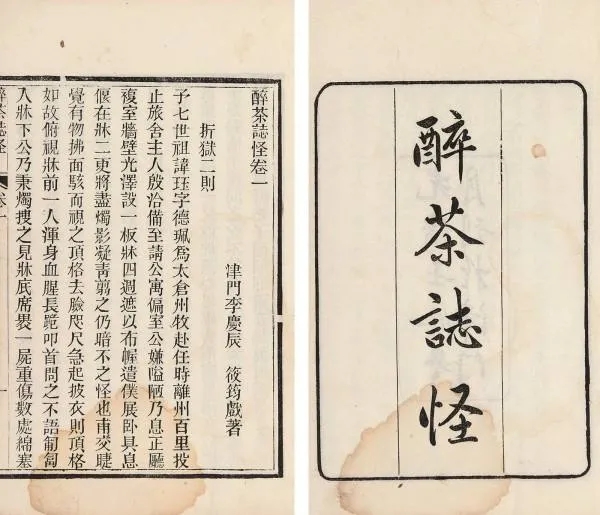 醉茶誌怪
醉茶誌怪卷一
津門李慶辰 筱筠戲著
折獄二則
子七世祖諱珏字德珮爲太倉州牧赴任時離州百里投
止旅舍主人殷洽備至請公寓偏室公嫌嗌陋乃息正廳
複室牆壁光澤設一板牀四週遮以布幄遣僕展卧具息
偃在牀二更將盡燭影凝靑剪之仍暗不之怪也甫交睫
覺有物拂面駭而視之頂格去臉咫尺急起披衣則頂格
如故俯視牀前一人渾身血腥長跪叩首問之不語匍匐
入牀下公乃秉燭搜之見牀底席裹一屍重傷數處綿塞
醉茶誌怪 卷一 一